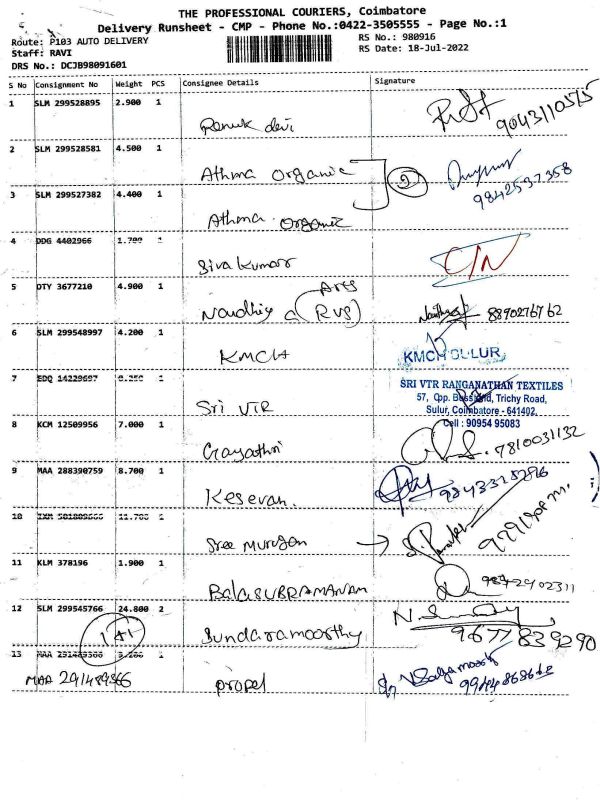 THE PROFESSIONAL COURIERS, Coimbatore
Delivery Runsheet - CMP - Phone No.:0422-3505555 - Page No.:1
Route: P103 AUTO DELIVERY RS No.: 980916
Staff: RAVI RS Date: 18-Jul-2022
DRS No.: DCJB98091601
S No Consignment No Weight PCS Consignee Details Signature
1 SLM 299528895 2.900 1
Renuk devi 9043110575
2 SLM 299528581 4.500 1
Athma Organic 2 9842597358
3 SLM 299527382 4.400 1
Athma organic
4 DDG 4402966 1.700 1
Siva kumar C/N
5 DTY 3677210 4.900 1
Nandhiya (Arts RVS) 8890276762
6 SLM 299548997 4.200 1
KMCH KMCH SULUR
7 EDQ 14229697 1
Sri VTR
SRI VTR RANGANATHAN TEXTILES
57, Opp. Bus Stand, Trichy Road,
Sulur, Coimbatore - 641402.
Cell : 90954 95083
8 KCM 12509956 7.000 1
Gayathri 7810031132
9 MAA 288390759 8.700 1
Kesevan. 9843325296
10 11.700 1
Sree Murugan
11 KLM 378196 1.900 1
BalaSUBRAMANAM
12 SLM 299545766 24.800 2
1+1 Sundaramoorthy 9677839290
13 MAA 291489366 1
MAA 291489366 propel